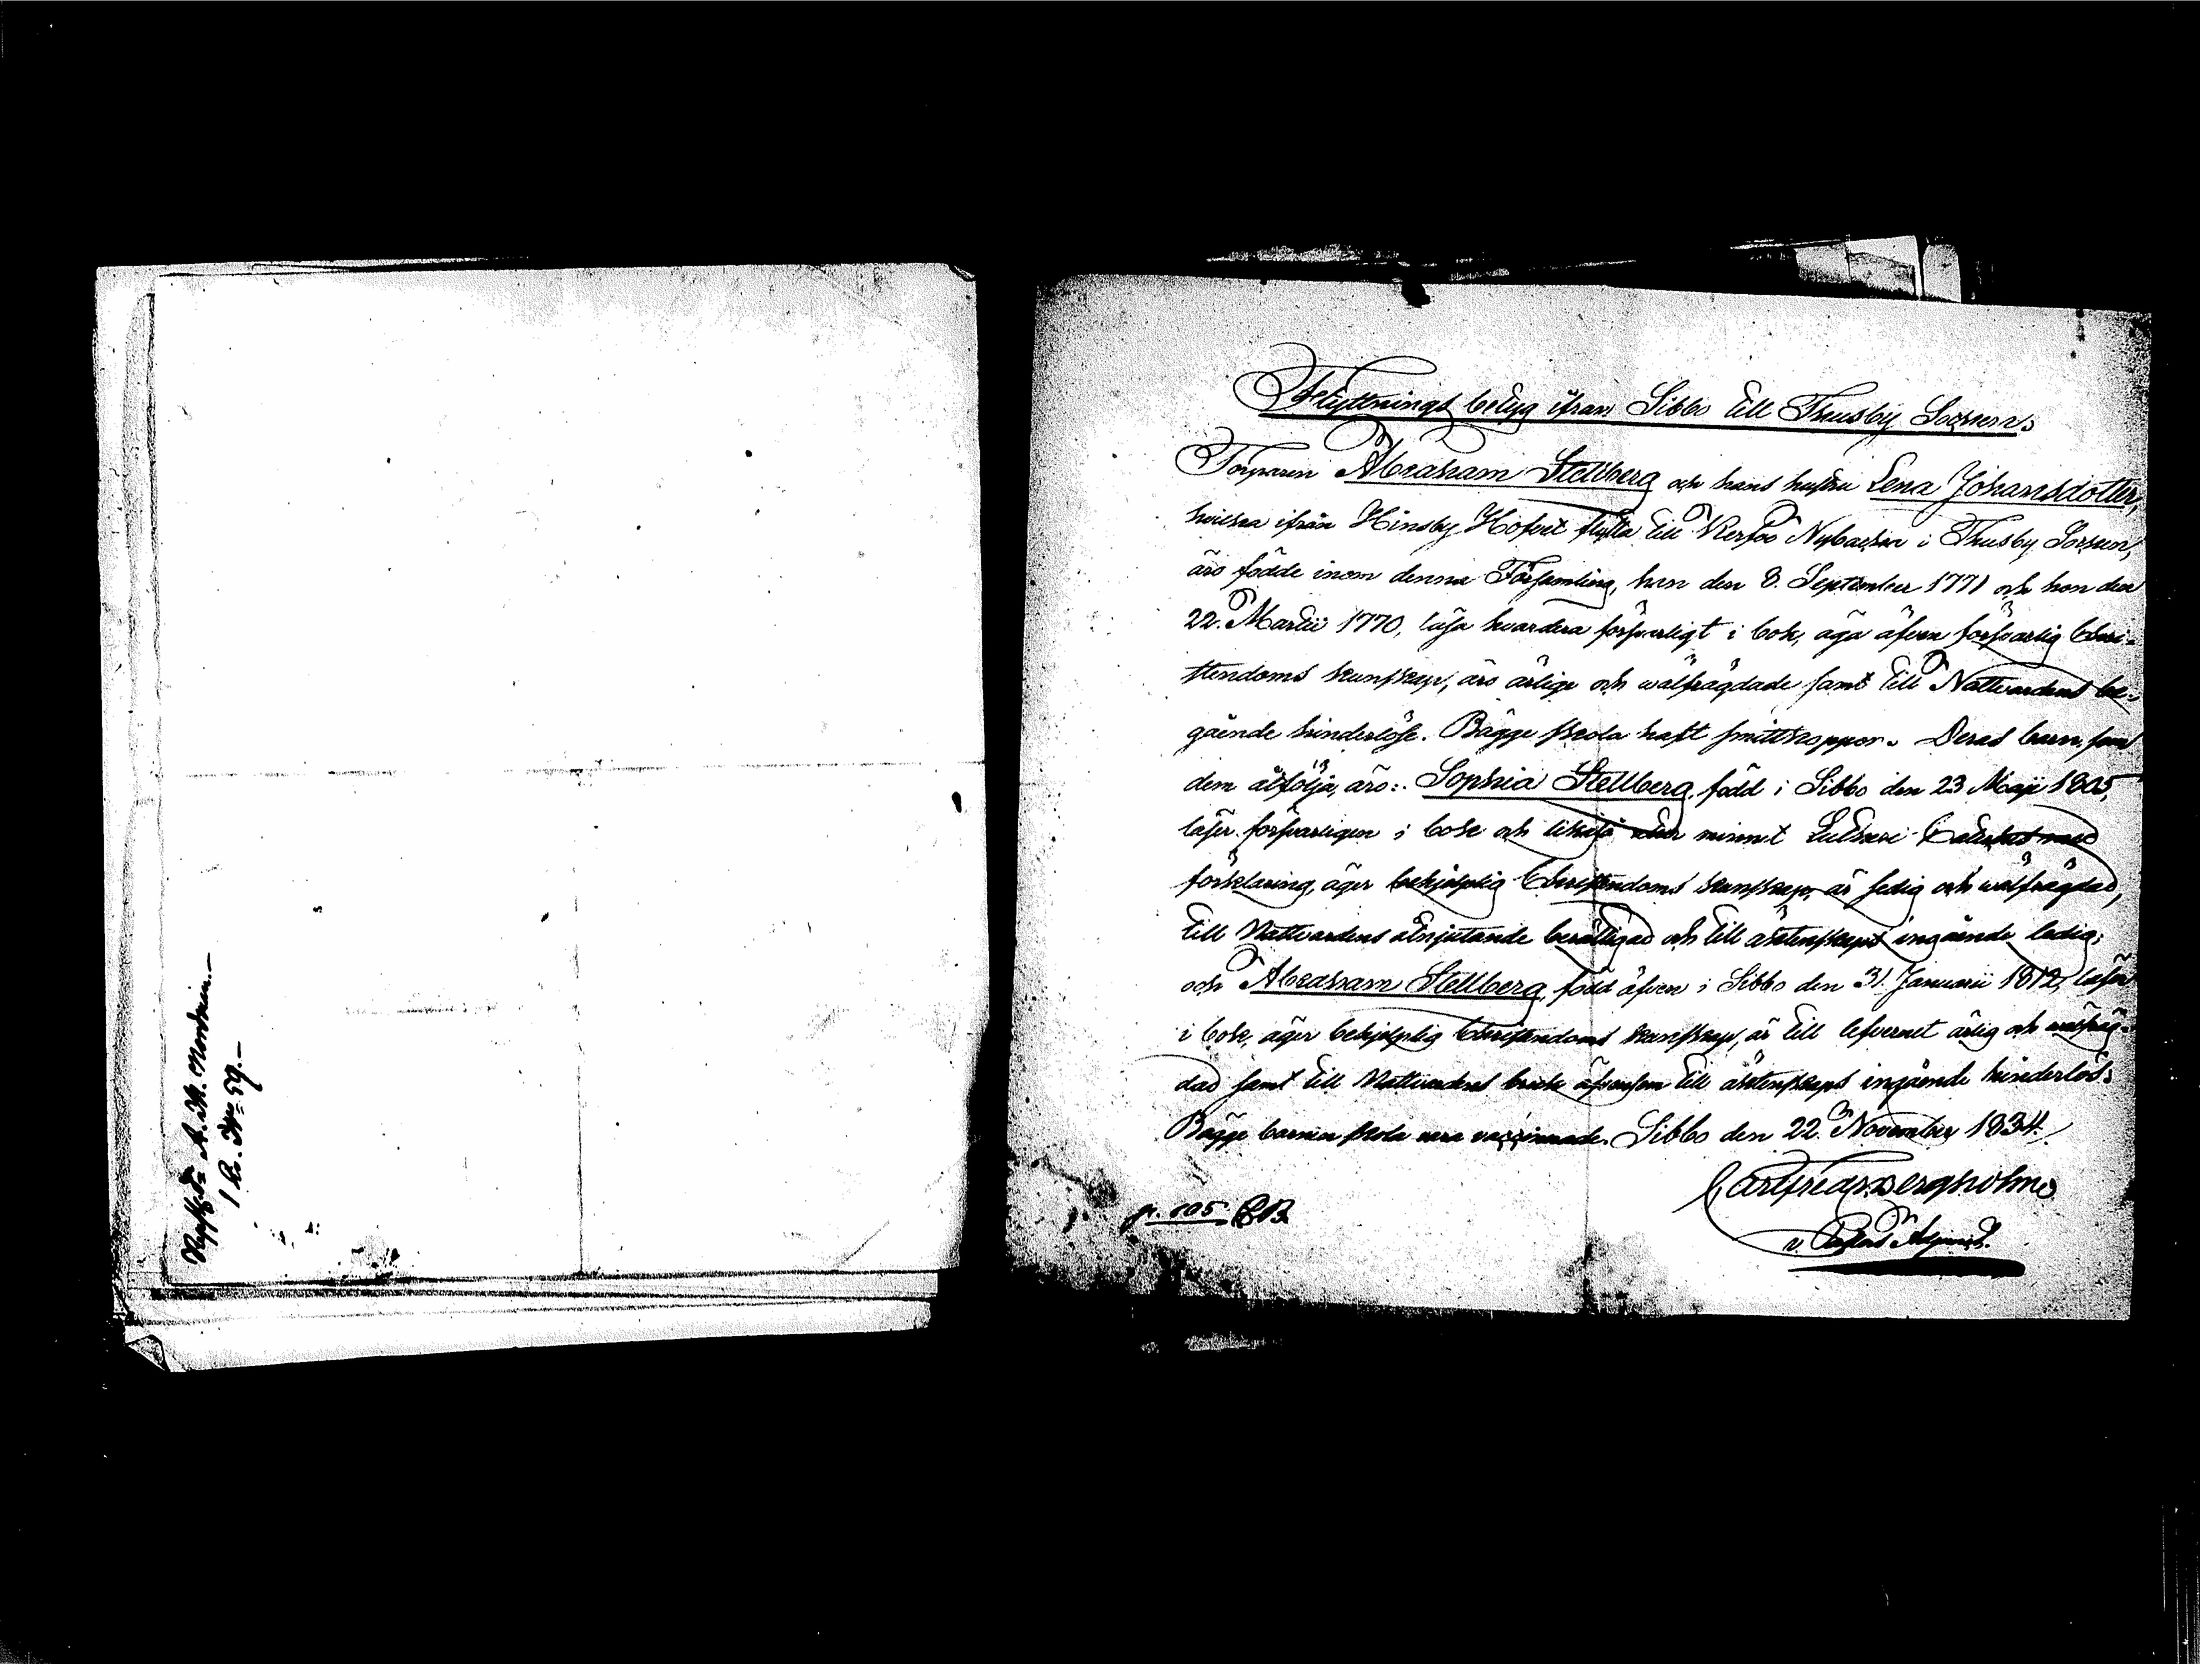 A. M. Nordman.—
1 Kr. No 59.—
Flyttnings betyg ifrån Sibbo till Thusby Socken.
Torparen Abraham Stellberg och hans hustru Lena Johansdotter,
hvilka ifrån Hinsby Hofvet flytta till Kerfoo Nybacka i Thusby Socken,
äro födde inom denna Församling, han den 8. September 1771 och hon den
22. Martii 1770, läsa hvardera försvarligt i bok, äga äfven försvarlig Chri-
stendoms kunskap, äro ärlige och wälfrägdade samt till Nattvardens be-
gående hinderlöse. Bägge skola haft smittkoppor. Deras barn, som
dem åtfölja, äro: Sophia Stellberg, född i Sibbo den 23 Maji 1805,
läser försvarligen i bok och likaså utur minnet Lutheri Cateches med
förklaring, äger behjelplig Christendoms kunskap, är sedig och wälfrägdad,
till Nattvardens åtnjutande berättigad och till äktenskaps ingående ledig;
och Abraham Stellberg, född äfven i Sibbo den 31. Januarii 1812, läser
i bok, äger behjelplig Christendoms kunskap, är till lefvernet ärlig och wälfräg-
dad samt till Nattvardens bruk äfvensom till äktenskaps ingående hinderlös.
Bägge barnen skola vara vaccinerade. Sibbo den 22. November 1834.
Carl Fredr. Bergholm
v. Pastors Adjunct.
p. 105 CB